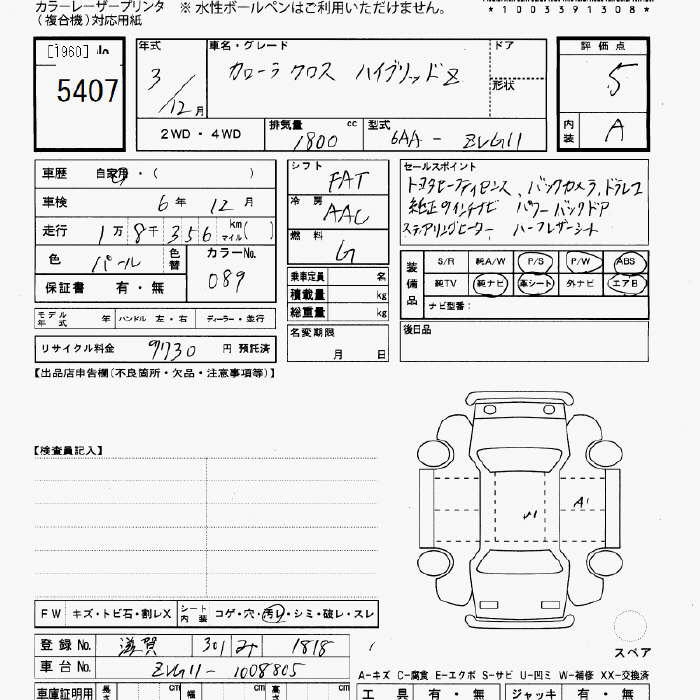 カラーレーザープリンタ ※ 水性ボールペンはご利用いただけません。
（複合機）対応用紙 *1003391308*
[1960]
5407
年式 車名・グレード ドア 評価点
3/12月 カローラ クロス ハイブリッドZ 形状 5
2WD・4WD 排気量 1800 cc 型式 6AA - ZVG11 内装 A
車歴 自家用・( )
車検 6年 12月
走行 1万8千356 km マイル( )
色 パール 色替 カラーNo. 089
保証書 有・無
シフト FAT
冷房 AAC
燃料 G
乗車定員 名
積載量 kg
総重量 kg
セールスポイント
トヨタセーフティセンス、バックカメラ、ドラレコ
純正9インチナビ パワーバックドア
ステアリングヒーター ハーフレザーシート
装備品 S/R 純A/W P/S P/W ABS
純TV 純ナビ 革シート 外ナビ エアB
ナビ型期：
モデル年式 年 ハンドル 左・右 ディーラー・並行
名変期限 月 日
後日品
リサイクル料金 9730 円 預託済
【出品店申告欄(不良箇所・欠品・注意事項等)】
【検査員記入】
A1
FW キズ・トビ石・割レX シート内装 コゲ・穴・汚レ・シミ・破レ・スレ
スペア
登録No. 滋賀 301 み 1818
車台No. ZVG11-1008805
A-キズ C-腐食 E-エクボ S-サビ U-凹ミ W-補修 XX-交換済
車庫証明用 長さ cm 幅 cm 高さ cm 工具 有・無 ジャッキ 有・無